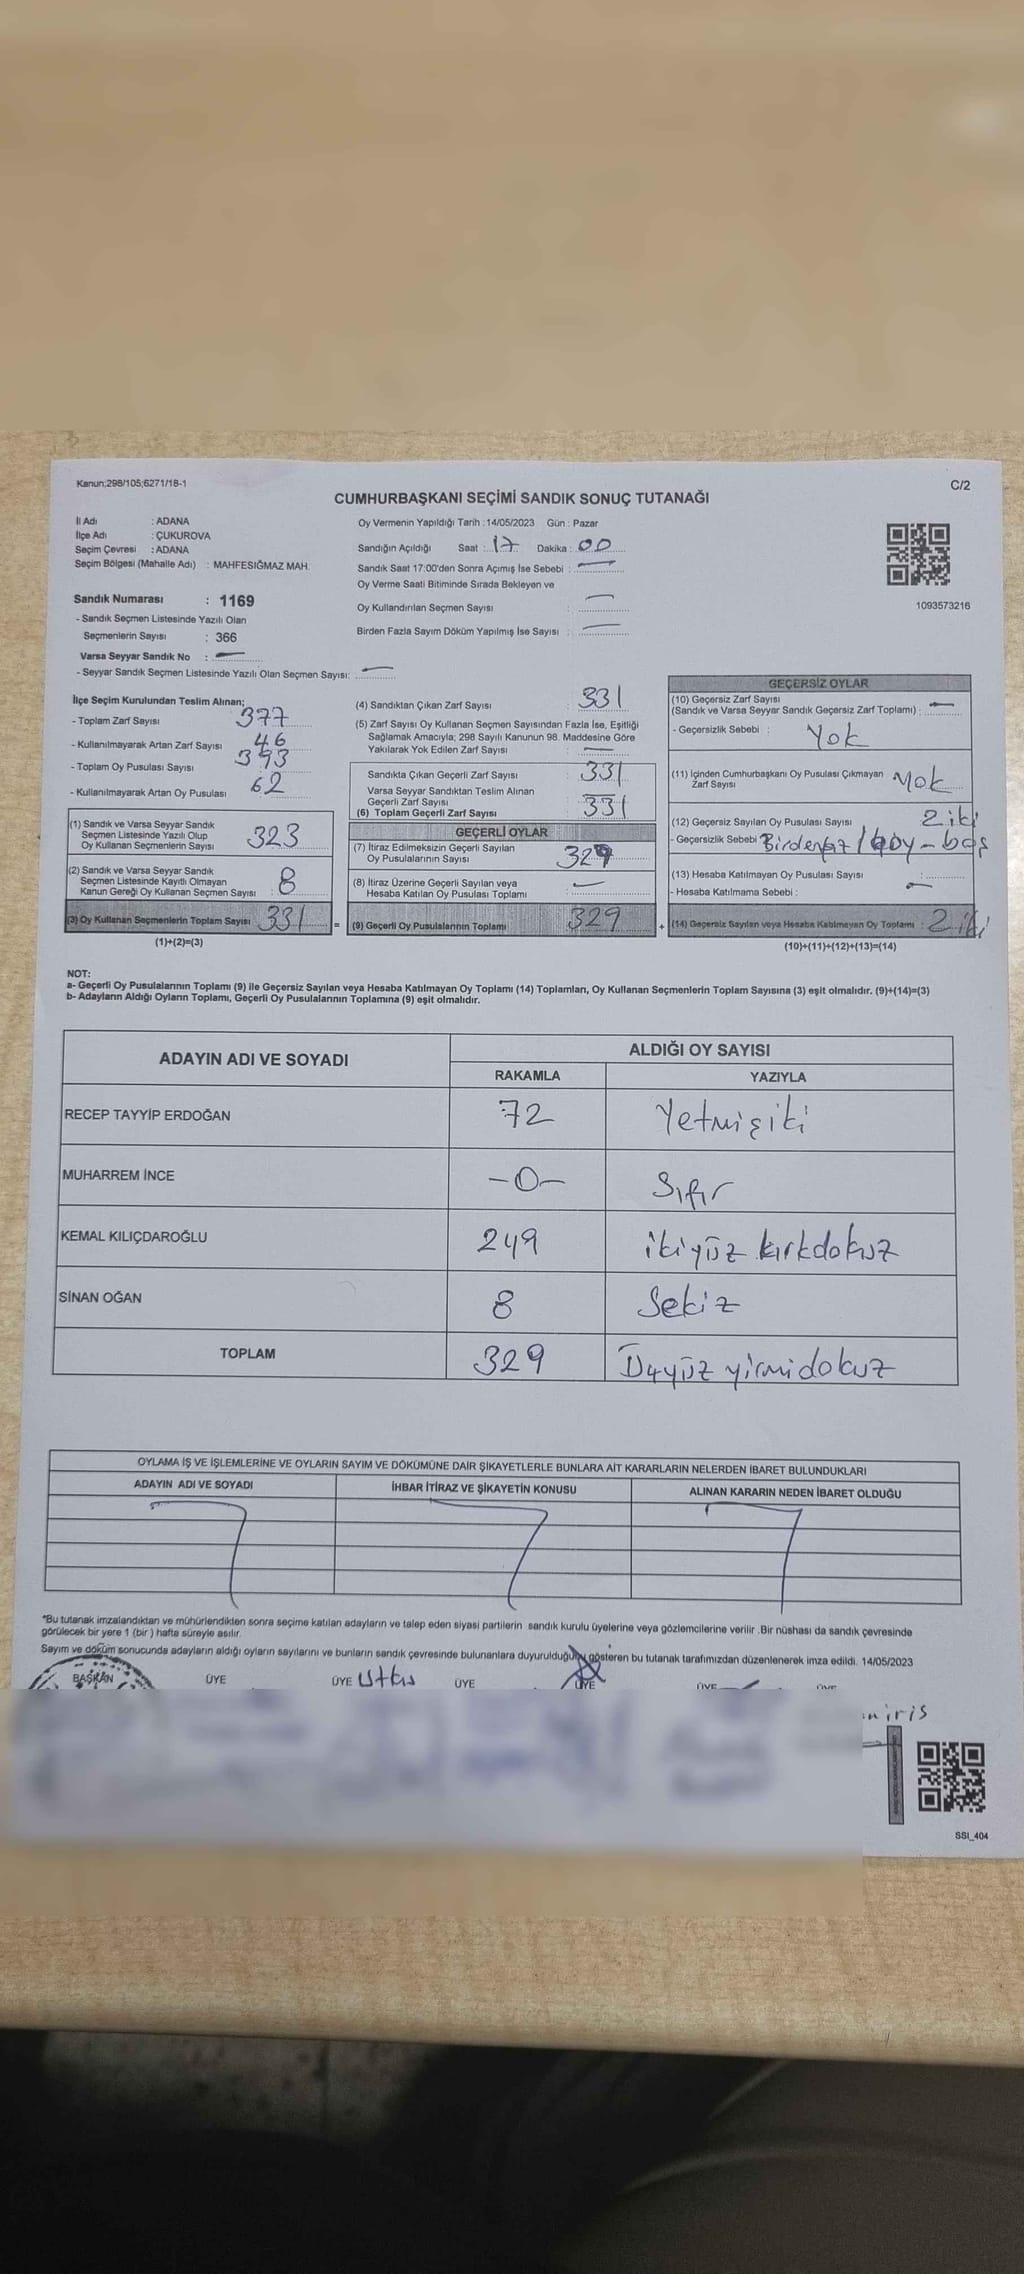 Kanun;298/105;6271/18-1
C/2
CUMHURBAŞKANI SEÇİMİ SANDIK SONUÇ TUTANAĞI
İl Adı : ADANA
İlçe Adı : ÇUKUROVA
Seçim Çevresi : ADANA
Seçim Bölgesi (Mahalle Adı) : MAHFESIĞMAZ MAH.
Oy Vermenin Yapıldığı Tarih :14/05/2023 Gün : Pazar
Sandığın Açıldığı Saat : 17 Dakika : 00
Sandık Saat 17:00'den Sonra Açımış İse Sebebi : —
Oy Verme Saati Bitiminde Sırada Bekleyen ve
Oy Kullandırılan Seçmen Sayısı : —
Birden Fazla Sayım Döküm Yapılmış İse Sayısı : —
1093573216
Sandık Numarası : 1169
- Sandık Seçmen Listesinde Yazılı Olan
Seçmenlerin Sayısı : 366
Varsa Seyyar Sandık No : —
- Seyyar Sandık Seçmen Listesinde Yazılı Olan Seçmen Sayısı: —
İlçe Seçim Kurulundan Teslim Alınan;
- Toplam Zarf Sayısı 377
- Kullanılmayarak Artan Zarf Sayısı 46
- Toplam Oy Pusulası Sayısı 393
- Kullanılmayarak Artan Oy Pusulası 62
(1) Sandık ve Varsa Seyyar Sandık
Seçmen Listesinde Yazılı Olup
Oy Kullanan Seçmenlerin Sayısı 323
(2) Sandık ve Varsa Seyyar Sandık
Seçmen Listesinde Kayıtlı Olmayan
Kanun Gereği Oy Kullanan Seçmen Sayısı : 8
(3) Oy Kullanan Seçmenlerin Toplam Sayısı 331 =
(1)+(2)=(3)
(4) Sandıktan Çıkan Zarf Sayısı : 331
(5) Zarf Sayısı Oy Kullanan Seçmen Sayısından Fazla İse, Eşitliği
Sağlamak Amacıyla; 298 Sayılı Kanunun 98. Maddesine Göre
Yakılarak Yok Edilen Zarf Sayısı : —
Sandıkta Çıkan Geçerli Zarf Sayısı : 331
Varsa Seyyar Sandıktan Teslim Alınan
Geçerli Zarf Sayısı : —
(6) Toplam Geçerli Zarf Sayısı 331
GEÇERLİ OYLAR
(7) İtiraz Edilmeksizin Geçerli Sayılan
Oy Pusulalarının Sayısı 329
(8) İtiraz Üzerine Geçerli Sayılan veya
Hesaba Katılan Oy Pusulası Toplamı : —
(9) Geçerli Oy Pusulalarının Toplamı 329 +
GEÇERSİZ OYLAR
(10) Geçersiz Zarf Sayısı
(Sandık ve Varsa Seyyar Sandık Geçersiz Zarf Toplamı) : —
- Geçersizlik Sebebi : Yok
(11) İçinden Cumhurbaşkanı Oy Pusulası Çıkmayan
Zarf Sayısı Yok
(12) Geçersiz Sayılan Oy Pusulası Sayısı 2 iki
- Geçersizlik Sebebi
(13) Hesaba Katılmayan Oy Pusulası Sayısı : —
- Hesaba Katılmama Sebebi :
(14) Geçersiz Sayılan veya Hesaba Katılmayan Oy Toplamı : 2 iki
(10)+(11)+(12)+(13)=(14)
NOT:
a- Geçerli Oy Pusulalarının Toplamı (9) ile Geçersiz Sayılan veya Hesaba Katılmayan Oy Toplamı (14) Toplamları, Oy Kullanan Seçmenlerin Toplam Sayısına (3) eşit olmalıdır. (9)+(14)=(3)
b- Adayların Aldığı Oyların Toplamı, Geçerli Oy Pusulalarının Toplamına (9) eşit olmalıdır.
ADAYIN ADI VE SOYADI ALDIĞI OY SAYISI
RAKAMLA YAZIYLA
RECEP TAYYİP ERDOĞAN 72 Yetmişiki
MUHARREM İNCE -0- Sıfır
KEMAL KILIÇDAROĞLU 249 ikiyüz kırkdokuz
SİNAN OĞAN 8 Sekiz
TOPLAM 329 Üçyüz yirmidokuz
OYLAMA İŞ VE İŞLEMLERİNE VE OYLARIN SAYIM VE DÖKÜMÜNE DAİR ŞİKAYETLERLE BUNLARA AİT KARARLARIN NELERDEN İBARET BULUNDUKLARI
ADAYIN ADI VE SOYADI İHBAR İTİRAZ VE ŞİKAYETİN KONUSU ALINAN KARARIN NEDEN İBARET OLDUĞU
*Bu tutanak imzalandıktan ve mühürlendikten sonra seçime katılan adayların ve talep eden siyasi partilerin sandık kurulu üyelerine veya gözlemcilerine verilir .Bir nüshası da sandık çevresinde
görülecek bir yere 1 (bir ) hafta süreyle asılır.
Sayım ve döküm sonucunda adayların aldığı oyların sayılarını ve bunların sandık çevresinde bulunanlara duyurulduğunu gösteren bu tutanak tarafımızdan düzenlenerek imza edildi. 14/05/2023
BAŞKAN ÜYE ÜYE ÜYE ÜYE ÜYE ÜYE
SSI_404